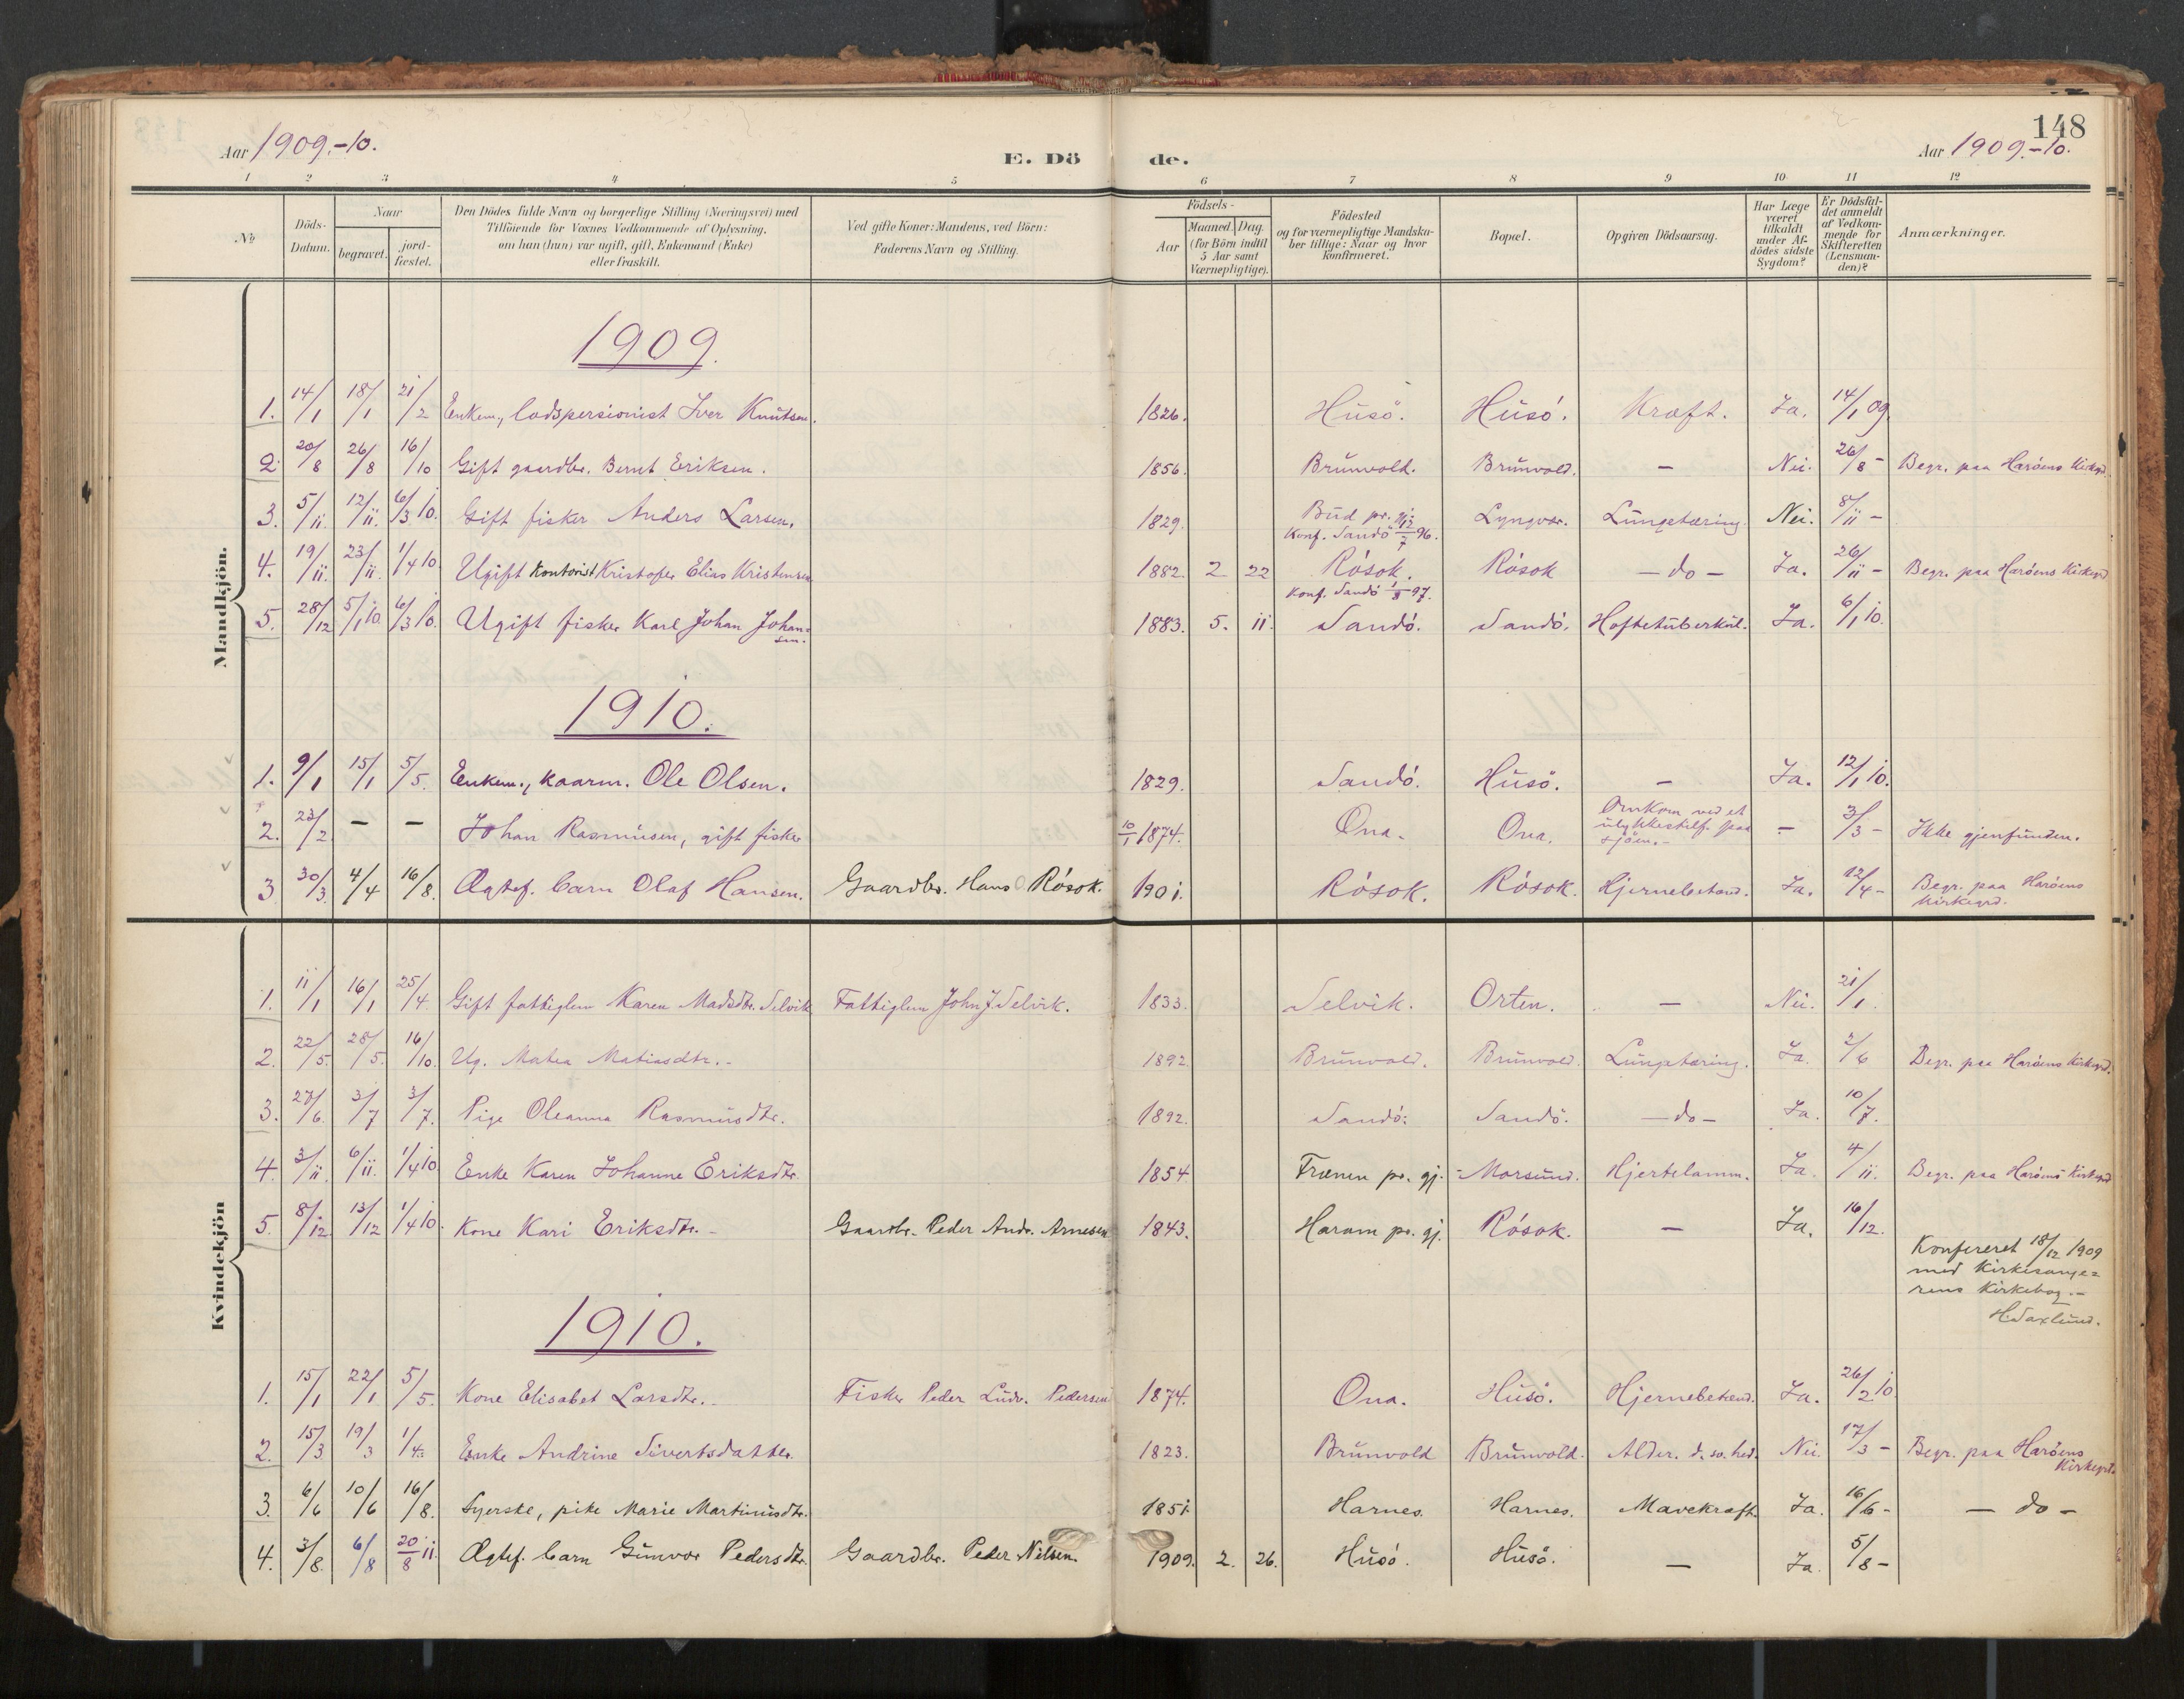 148
Aar 1909.-10.
E. Dö de.
Aar 1909.-10.
1 2 3 4 5 6 7 8 9 10 11 12
No
Döds-Datum.
Naar
begravet.
jord-fæstet.
Den Dödes fulde Navn og borgerlige Stilling (Næringsvei) med
Tilföiende for Voxnes Vedkommende af Oplysning,
om han (hun) var ugift, gift, Enkemand (Enke)
eller fraskilt.
Ved gifte Koner: Mandens, ved Börn:
Faderens Navn og Stilling.
Födsels-
Aar
Maaned. Dag.
(for Börn indtil
5 Aar samt
Værnepligtige).
Födested
og for værnepligtige Mandska-
ber tillige: Naar og hvor
konfirmeret.
Bopæl.
Opgiven Dödsaarsag.
Har Læge
været
tilkaldt
under Af-
dödes sidste
Sygdom?
Er Dödsfal-
det anmeldt
af Vedkom-
mende for
Skifteretten
(Lensman-
den)?
Anmærkninger.
Mandkjön.
1909.
1. 14/1 18/1 21/2 Enkem., lodspensionist Iver Knutsen. 1826. Husö. Husö. Kræft. Ja. 14/1 09.
2. 20/8 26/8 16/10 Gift gaardbr. Bernt Eriksen. 1856. Brunvold. Brunvold. — Nei. 26/8 - Begr. paa Haröens Kirkegd.
3. 5/11. 12/11. 6/3 10. Gift fisker Anders Larsen. 1829. Bud pr. gj. Lyngvær. Lungetæring. Nei. 8/11 -
Konf. Sandö 12/7 96.
4. 19/11. 23/11. 1/4 10 Ugift Kontorist Kristofer Elias Kristensen 1882 2 22 Rösok. Rösok — do — Ja. 26/11 - Begr. paa Haröens Kirkegd
Konf. Sandö 1/8 97.
5. 28/12 5/1 10. 6/3 10. Ugift fisker Karl Johan Johan=
sen. 1883. 5. 11. Sandö. Sandö. Hoftetuberkul. Ja. 6/1 10.
1910.
1. 9/1 15/1 5/5. Enkem., kaarm. Ole Olsen. 1829. Sandö. Husö. — Ja. 12/1 10.
2. 23/2. — — Johan Rasmussen, gift fisker 10/1 1874. Ona. Ona. Omkom ved et
ulykkestilf. paa
sjöen.- — 3/3 - Ikke gjenfunden.
3 30/3. 4/4 16/8. Ægtef. barn Olaf Hansen. Gaardbr. Hans O Rösok. 1901. Rösok. Rösok. Hjernebetænd. Ja. 12/4 - Begr. paa Haröens
Kirkegrd.
Kvindekjön
1. 11/1 16/1 25/4 Gift fattiglem Karen Madsdtr. Selvik Fattiglem John J Selvik. 1833. Selvik. Orten. — Nei. 21/1.
2. 22/5. 28/5. 16/10. Ug. Matea Matiasdtr.- 1892. Brunvold. Brunvold. Lungetæring. Ja. 2/6 Begr. paa Haröens Kirkegrd.
3. 27/6. 3/7 3/7. Pige Oleanna Rasmusdtr. 1892. Sandö. Sandö. — do — Ja. 10/7.
4. 3/11. 6/11. 1/4 10 Enke Karen Johanne Eriksdtr. 1854 Frænen pr. gj. Morsund. Hjertelamm. Ja. 4/11. Begr. paa Haröens Kirkegrd
5. 8/12. 13/12 1/4 10. Kone Kari Eriksdtr.- Gaardbr. Peder Andr. Arnesen 1843. Haram pr. gj. Rösok. — Ja. 16/12.
Konfereret 18/12 1909
med Kirkesange=
rens Kirkebog.-
H. Saxlund.
1910.
1. 15/1 22/1 5/5. Kone Elisabet Larsdtr.- Fisker Peder Ludv. Pedersen 1874. Ona. Husö. Hjernebetænd. Ja. 26/2 10.
2. 15/3. 19/3 1/4. Enke Andrine Sivertsdatter. 1823. Brunvold Brunvold. Alder. d. so. hed. Nei. 17/3 - Begr. paa Haröens
Kirkegrd.
3. 6/6 10/6 16/8. Syerske, pike Marie Martinusdtr. 1851. Harnes. Harnes. Mavekræft. Ja. 16/6 - — do -
4. 3/8. 6/8 20/8 11. Ægtef. barn Gunvor Pedersdtr. Gaardbr. Peder Nilsen. 1909. 2. 26. Husö. Husö. — Ja. 5/8 -